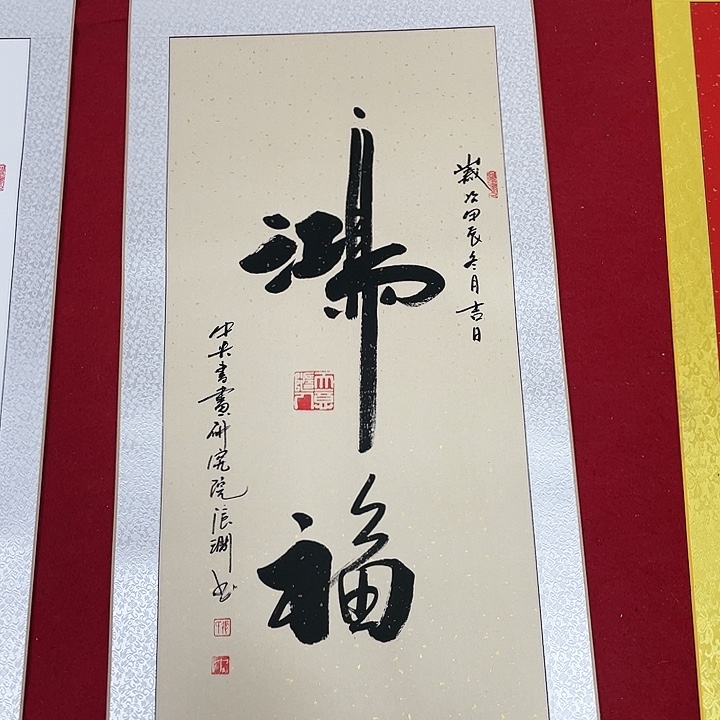 歲次甲辰冬月吉日
福
中央書畫研究院張
書